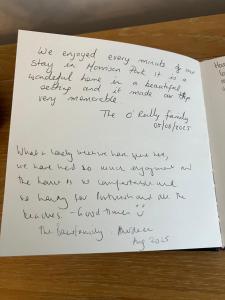 We enjoyed every minute of our
stay in Morrison Park it is a
wonderful home in a beautiful
setting and it made our trip
very memorable
The O'Reilly family
05/08/2025
What a lovely week we have spent here,
we have had so much enjoyment and
the house is so comfortable and
so handy for Portrush and all the
beaches. - Good times
The family
Aug 2025